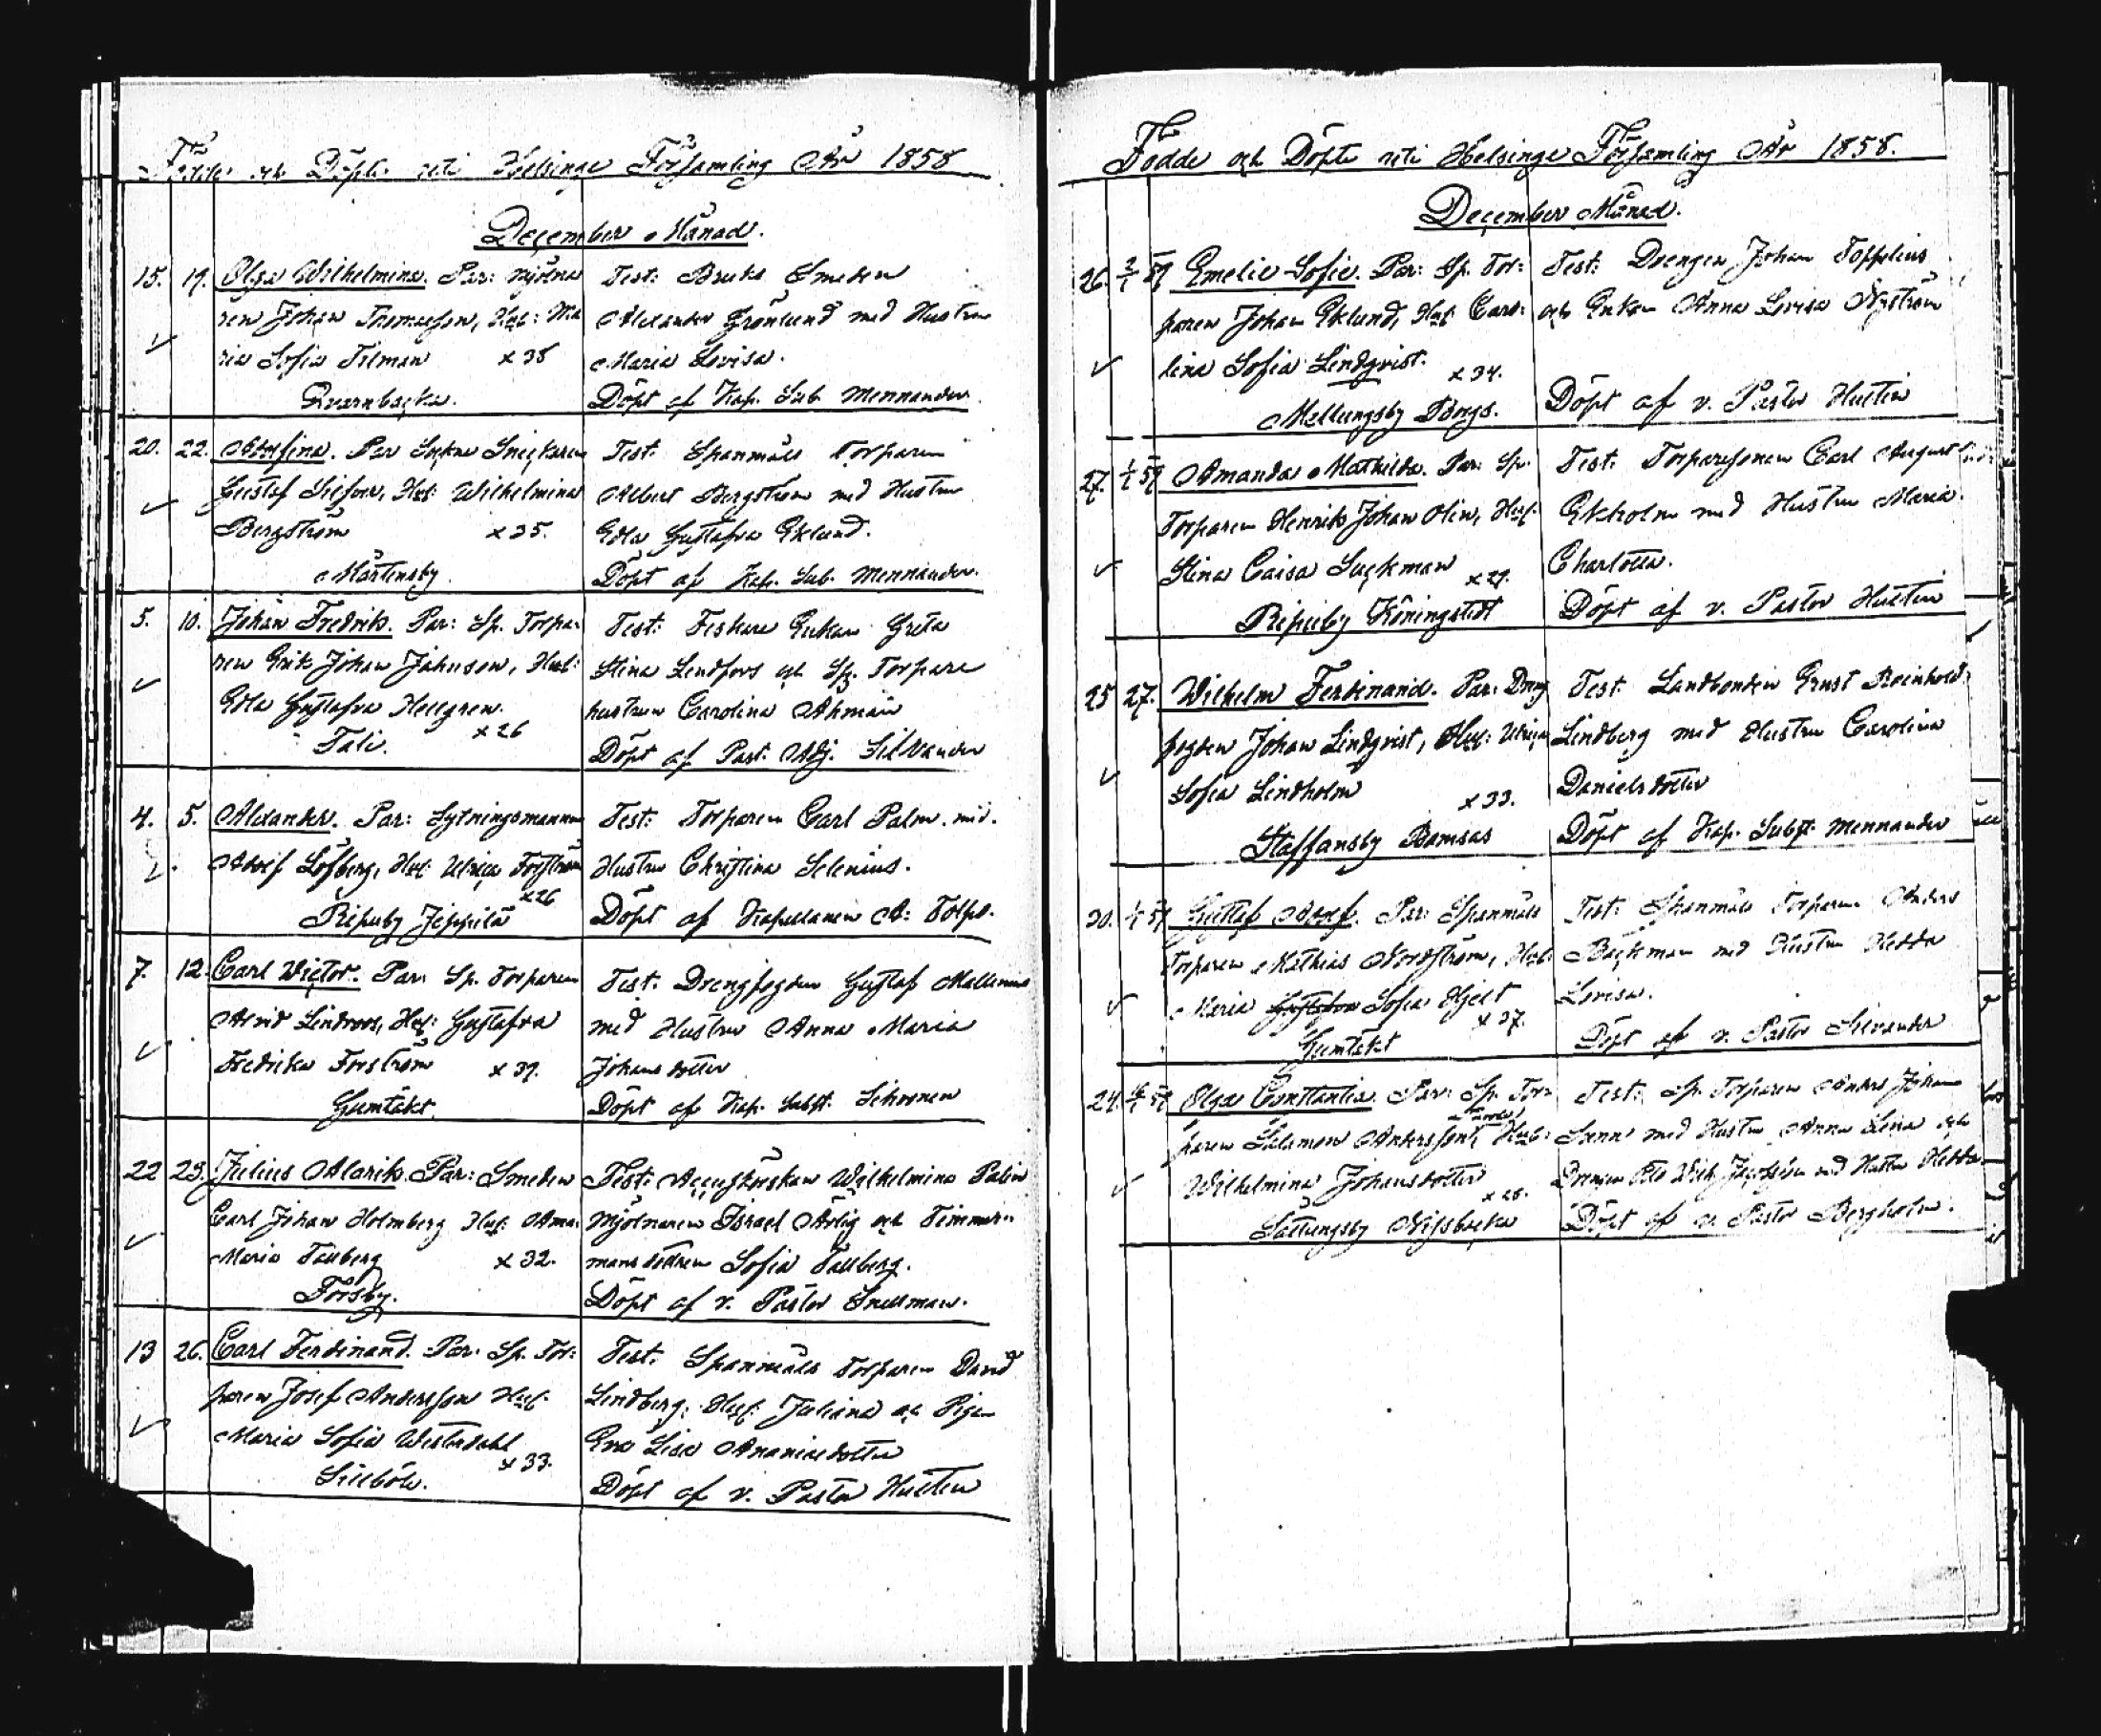 Födde och Döpte uti Helsinge Församling År 1858
December Månad.
15. 19. Olga Wilhelmina. Par: Mjölna
ren Johan Thomasson, Hust: Ma
ria Sofia Tilman x 38
Qvarnbacka.
Test: Bruks Smeden
Alexander Grönlund med Hustru
Maria Lovisa.
Döpt af Kap. Sub. Mennander.
20. 22. Adolfina. Par Sockne Snickaren
Gustaf Hust: Wilhelmina
Bergström x 35.
Mårtensby
Test: Spanmåls Torparen
Albert Bergström med Hustru
Edla Gustafva Eklund.
Döpt af Kap. Sub. Mennander.
5. 10. Johan Fredrik. Par: Sp. Torpa-
ren Erik Johan Johnson, Hust:
Edla Gustafva Hellgren.
x 26
Tali.
Test: Fiskare Enkan Greta
Stina Lindfors och Sp. Torpare
hustrun Carolina Åhman
Döpt af Past. Adj. Silvander
4. 5. Alexander. Par: Lytningsmannen
Adolf Löfberg, Hust: Ulrica Forström
x 26
Ripuby Jeppilä
Test: Torparen Carl Palm med
Hustru Christina Selenius.
Döpt af Kapellanen A: Tolpo.
7. 12. Carl Victor. Par: Sp. Torparen
Arvid Lindroos, Hust: Gustafva
Fredrika Forström x 39.
Gumtäkt
Test: Drengfogden Gustaf Mallenius
med Hustru Anna Maria
Johansdotter
Döpt af Kap. Subst. Schroven
22 23. Julius Alarik. Par: Smeden
Carl Johan Holmberg Hust: Anna
Maria Tallberg x 32.
Forsby.
Test: Accuskörskan Wilhelmina Palin
Mjölnaren Israel Ärlig och Timmer-
mans dottren Sofia Tallberg.
Döpt af v. Pastor Snellman.
13 26. Carl Ferdinand. Par. Sp. Tor:
paren Josef Andersson Hust:
Maria Sofia Westerdahl
x 33.
Sillböle.
Test: Spanmåls Torparen David
Lindberg, Hust: Juliana och Pigan
Eva Lisa Ananiasdotter
Döpt af v. Pastor Hultin
Födde och Döpte uti Helsinge Församling År 1858.
December Månad.
26. 2/1 59 Emelie Sofie. Par: Sp. Tor:
paren Johan Eklund, Hust: Caro:
lina Sofia Lindqvist.
x 34.
Mellungsby Borgs.
Test: Drengen Johan Toppelius
och Enkan Anna Lovisa Nyström
Döpt af v. Pastor Hultin
27. 1/1 59 Amanda Mathilda. Par: Sp.
Torparen Henrik Johan Olin, Hust:
Stina Caisa Luckman x 29.
Ripuby Köningstedt
Test: Torparesonen Carl August
Ekholm med Hustru Maria
Charlotta.
Döpt af v. Pastor Hultin
25 27. Wilhelm Ferdinand. Par: Dreng
fogden Johan Lindqvist, Hust: Ulrica
Sofia Lindholm x 33.
Staffansby Bomsas
Test: Landbonden Ernst Reinhold
Lindberg med Hustru Carolina
Danielsdotter
Döpt af Kap. Subst. Mennander
30. 59 Gustaf Adolf. Par: Spanmåls
Torparen Mathias Nordström, Hust:
Maria Gustafva Sofia Hjelt
x 37.
Gumtäkt
Test: Spanmåls Torparen Anders
Backman med Hustru Hedda
Lovisa.
Döpt af v. Pastor Silvander
24. 59 Olga Constantia. Par: Sp. Tor-
paren Salomon Andersson, Hust:
Wilhelmina Johansdotter
x 28.
Sottungsby Nissbacka
Test: Sp. Torparen Anders Johan
Sunn med Hustru Anna Lena och
Drengen Otto Wilh. Jacobsson med Hustru Hedda
Döpt af v. Pastor Bergholm.